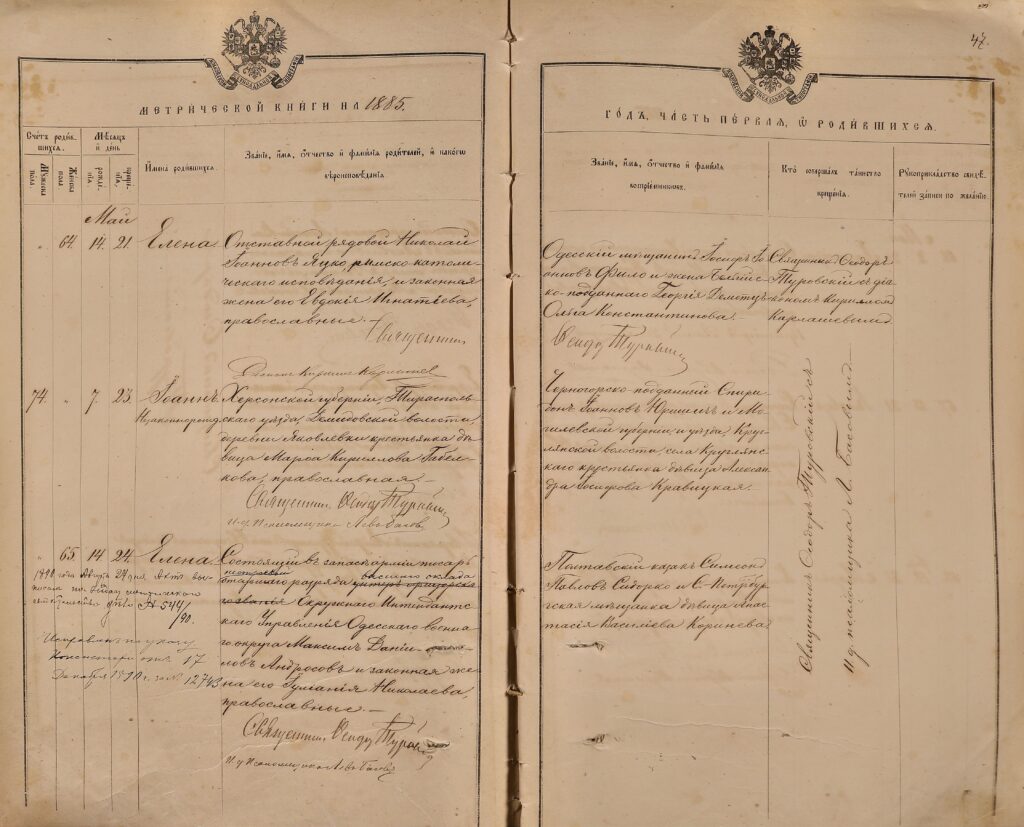 47.
МЕТРИЧЕСКОЙ КНИГИ НА 1885.
Счетъ роди́вшихся.
Мѣсяцъ и день
Мужеска пола
Женска пола
рожденія
крещенія
Имена родившихся.
Званіе, имя, отчество и фамилія родителей, и какого
вѣроисповѣданія.
Май
„ 64. 14. 21. Елена.
Отставной рядовой Николай
Іоанновъ Яцко, римско-католи-
ческаго исповѣданія, и законная
жена его Евдокія Игнатіева,
православные.—
Священникъ
Діаконъ Кириллъ Карлашевъ
74. „ 7. 23. Іоаннъ
Незаконнорожд.
Херсонской губерніи, Тирасполь-
скаго уѣзда, Демидовской волости,
деревни Яковлевки крестьянка дѣ-
вица Марѳа Кириллова
православная.—
Священникъ Ѳеодоръ Туровскій
И. д. Псаломщика Левъ Басовъ
„ 65. 14. 24. Елена.
Состоящій въ запасѣ арміи писарь
старшаго разряда унтеръ-офицерска-
го званія Окружнаго Интендантс-
каго Управленія Одесскаго военна-
го округа Максимъ Даніи-
ловъ Андросовъ и законная же-
на его Іуліанія Николаева,
православные.—
Священникъ Ѳеодоръ Туровскій
И. д. Псаломщика Левъ Басовъ
1890 года 24 дня
№ 544/90.
Исправл. по указу
Консисторіи отъ 17
Декабря 1890 г. за № 12743
ГОДЪ, ЧАСТЬ ПЕРВАЯ, Ѡ РОДИВШИХСЯ.
Званіе, имя, отчество и фамилія
воспріемниковъ.
Кто совершалъ таинство
крещенія.
Рукоприкладство свидѣ-
телей записи по желанію.
Одесскій мѣщанинъ Іосифъ Іо-
анновъ Фило и жена
ко-подданнаго Георгія
Ольга Константинова.—
Священникъ Ѳеодоръ
Туровскій съ діа-
кономъ Кирилломъ
Карлашевымъ
Ѳеодоръ Туровскій
Черногорско-подданный Спири-
донъ Іоанновъ Юришичъ и Мо-
гилевской губерніи и уѣзда, Круг-
лянской волости, села Круглянс-
каго крестьянка дѣвица Алексан-
дра Іосифова Кравицкая.—
Священникъ Ѳеодоръ Туровскій съ
и. д. псаломщика Л. Басовымъ
Полтавскій казакъ Симеонъ
Павловъ Сидорко и С.-Петербур-
гская мѣщанка дѣвица Анас-
тасія Касиміева Коринева